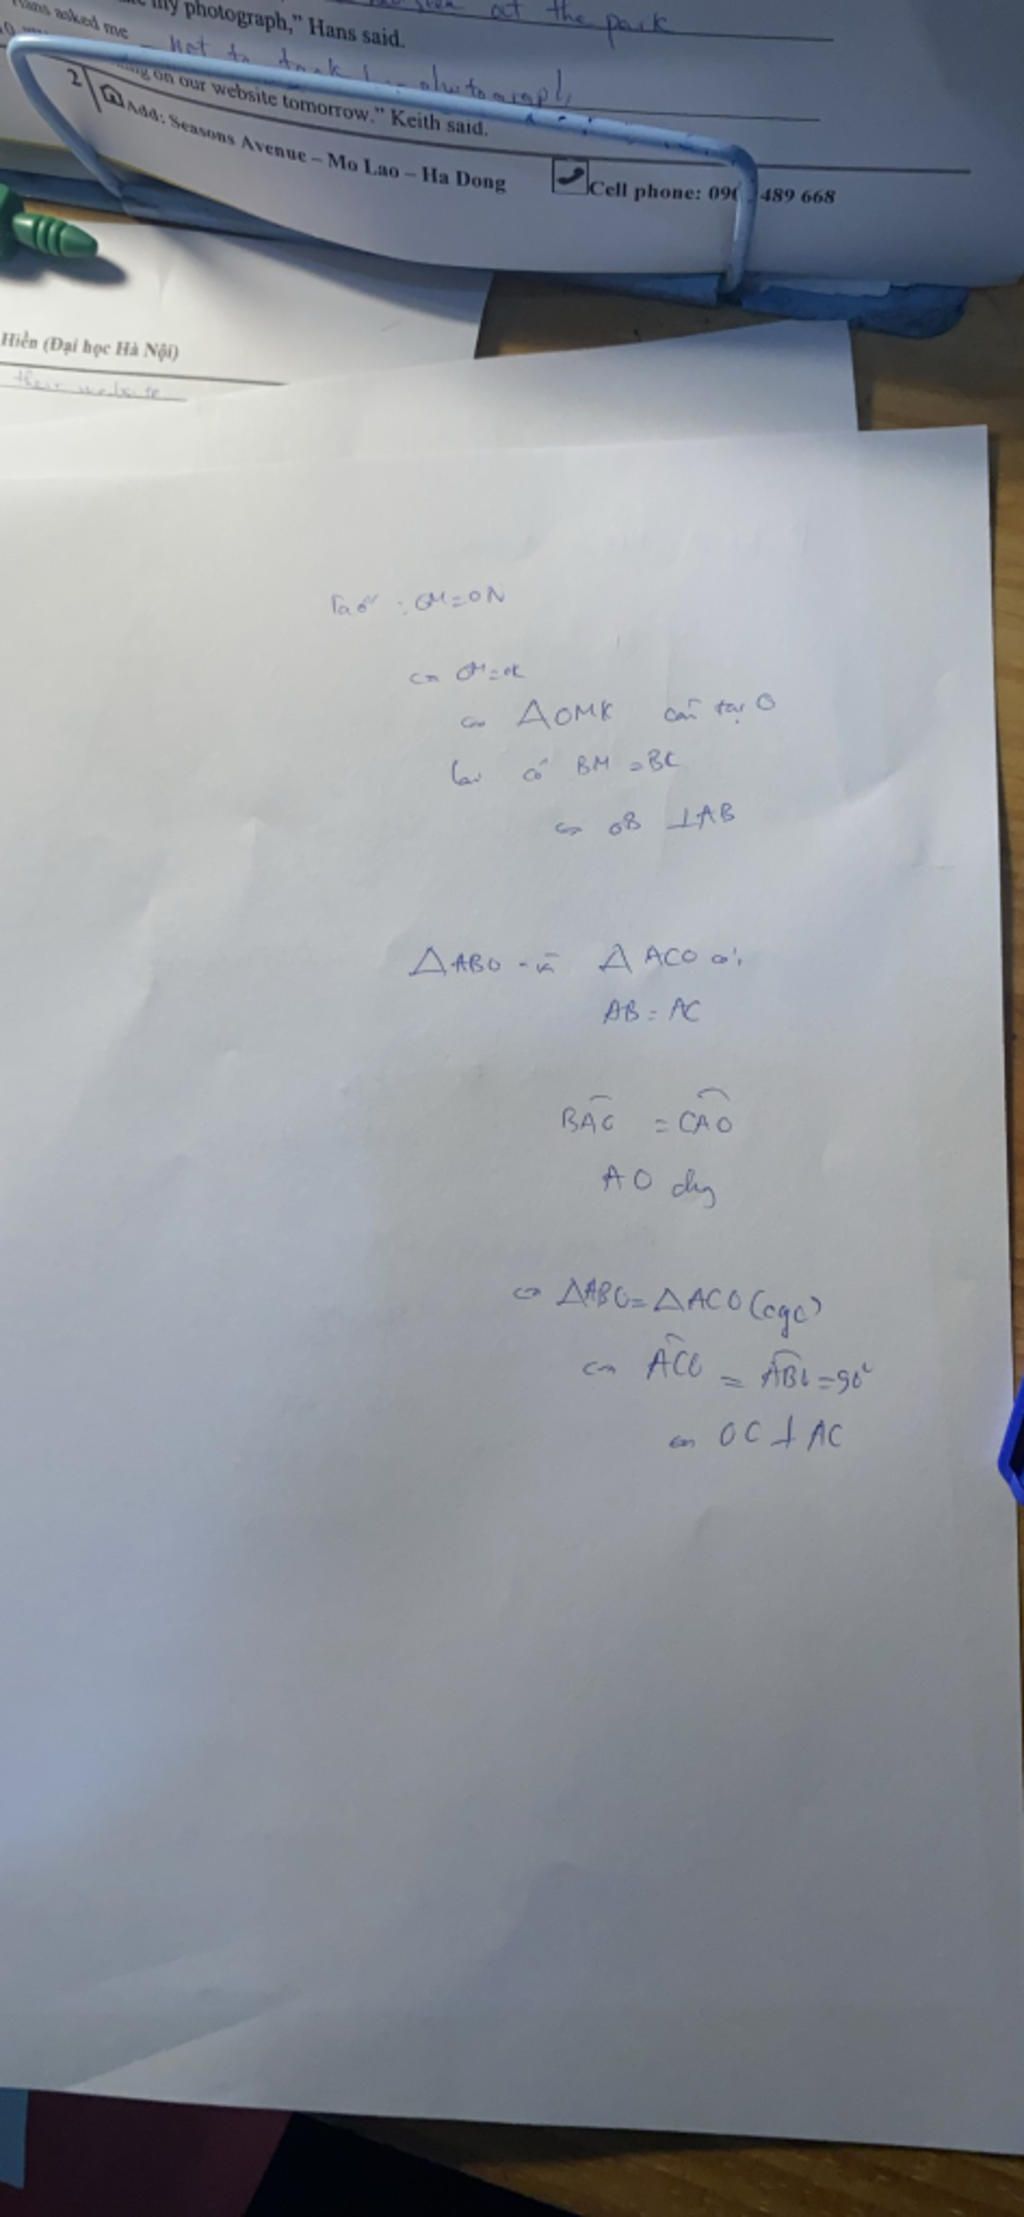 at the park
my photograph," Hans said.
Hans asked me not to
on our website tomorrow." Keith said.
2
Add: Seasons Avenue – Mo Lao – Ha Dong
Cell phone: 090 489 668
Hiền (Đại học Hà Nội)
their website
Ta có : OM = ON
OM = OK
△OMK cân tại O
lại có BM = BC
OB ⊥ AB
△ABO và △ACO có:
AB = AC
BAO = CAO
AO chg
△ABO = △ACO (cgc)
ACO = ABO = 90°
OC ⊥ AC